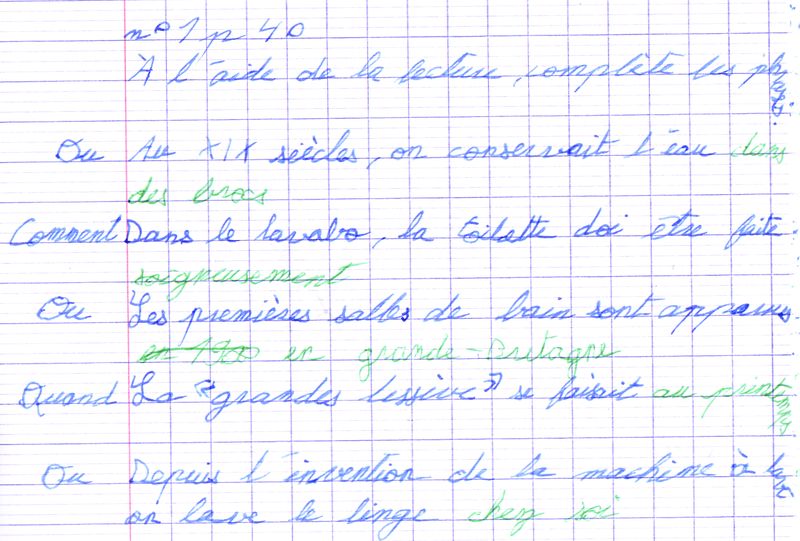 n° 1 p 40
À l'aide de la lecture, complète les phrases.
Ou Au XIX siècles, on conservait l'eau dans
des brocs
Comment Dans le lavabo, la toilette doi être faite
soigneusement
Ou Les premières salles de bain sont apparues
en 1900 en grande-Bretagne
Quand La "grandes lessive" se faisait au printemps
Ou Depuis l'invention de la machine à laver
on lave le linge chez soi